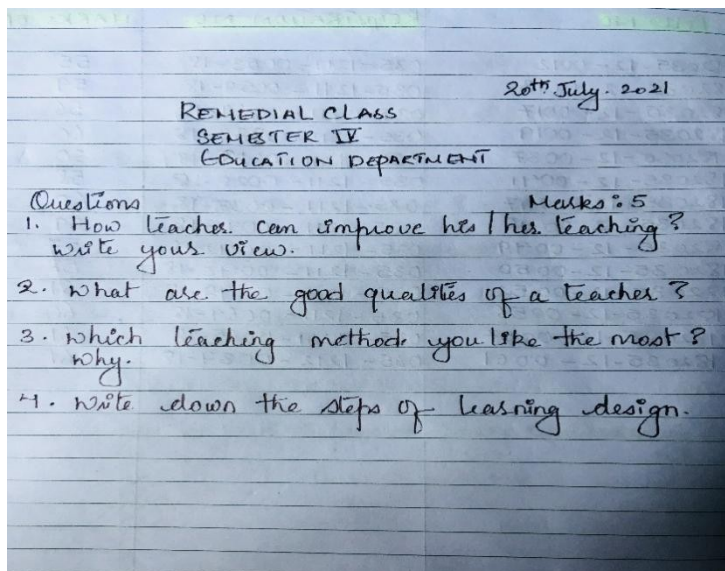 20th July. 2021
REMEDIAL CLASS
SEMESTER IV
EDUCATION DEPARTMENT
Questions Marks: 5
1. How teacher can improve his/her teaching?
write your view.
2. What are the good qualities of a teacher?
3. which teaching method you like the most?
why.
4. write down the steps of learning design.